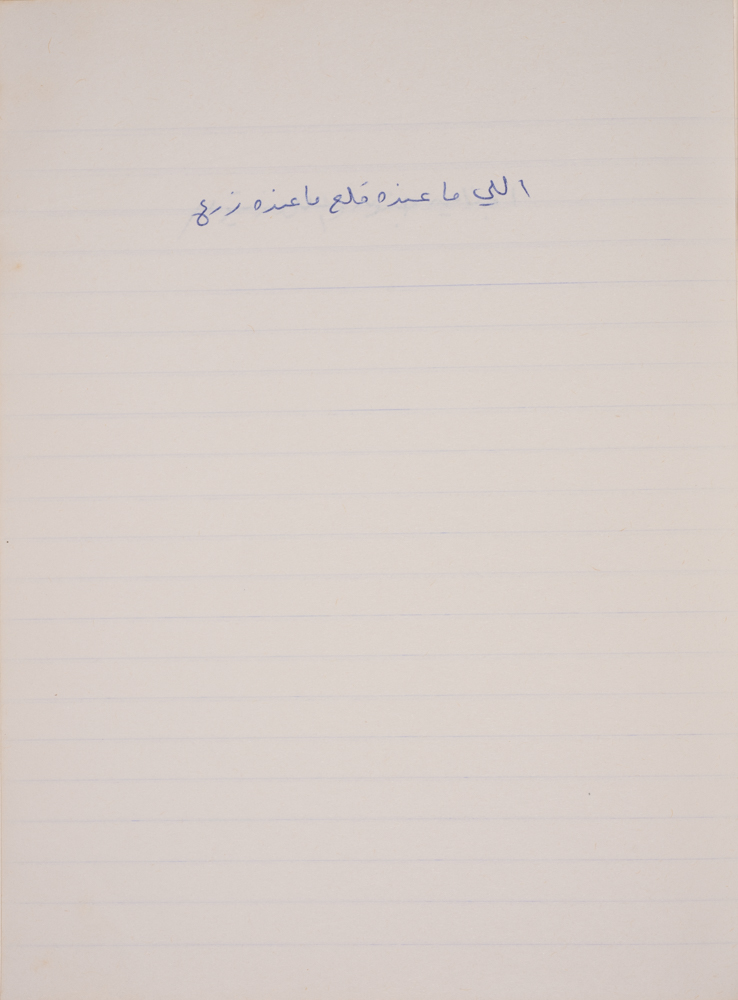 اللي ما عنده قلع ما عنده زرع